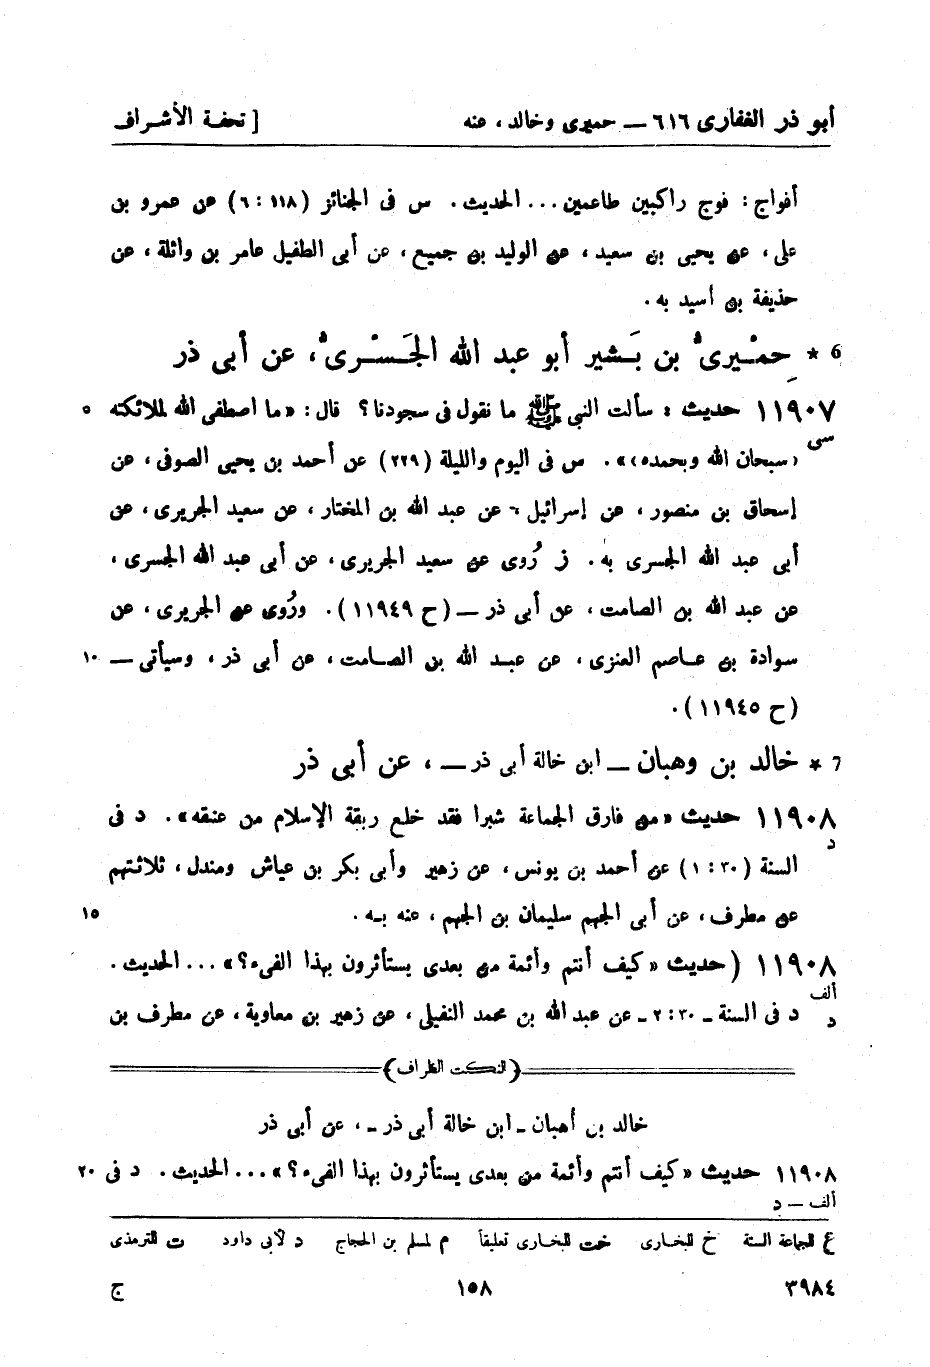 أبو ذر الغفارى ٦١٦ — حميرى وخالد ، عنه [ تحفة الأشراف
أفواج : فوج راكبين طاعمين ... الحديث . س فى الجنائز ( ١١٨ : ٦ ) عن عمرو بن
على ، عن يحيى بن سعيد ، عن الوليد بن جميع ، عن أبى الطفيل عامر بن واثلة ، عن
حذيفة بن أسيد به .
6 * حمْيرىُّ بن بَشير أبو عبد الله الجَسْرىُّ ، عن أبى ذر
١١٩٠٧ حديث : سألت النبى ﷺ ما نقول فى سجودنا ؟ قال : «ما اصطفى الله لملائكته ٥
سى
(سبحان الله وبحمده)» . س فى اليوم والليلة (٢٢٩) عن أحمد بن يحيى الصوفى ، عن
إسحاق بن منصور ، عن إسرائيل ، عن عبد الله بن المختار ، عن سعيد الجريرى ، عن
أبى عبد الله الجسرى به . ز رُوى عن سعيد الجريرى ، عن أبى عبد الله الجسرى ،
عن عبد الله بن الصامت ، عن أبى ذر — ( ح ١١٩٤٩ ) . ورُوى عن الجريرى ، عن
سوادة بن عاصم العنزى ، عن عبد الله بن الصامت ، عن أبى ذر ، وسيأتى — ١٠
( ح ١١٩٤٥ ) .
7 * خالد بن وهبان — ابن خالة أبى ذر — ، عن أبى ذر
١١٩٠٨ حديث «من فارق الجماعة شبرا فقد خلع ربقة الإسلام من عنقه» . د فى
د
السنة ( ٣٠ : ١ ) عن أحمد بن يونس ، عن زهير وأبى بكر بن عياش ومندل ، ثلاثتهم
عن مطرف ، عن أبى الجهم سليمان بن الجهم ، عنه به . ١٥
١١٩٠٨ ( حديث « كيف أنتم وأئمة من بعدى يستأثرون بهذا الفىء ؟ » ... الحديث .
ألف
د
د فى السنة ـ ٣٠ : ٢ ـ عن عبد الله بن محمد النفيلى ، عن زهير بن معاوية ، عن مطرف بن
( النكت الظراف )
خالد بن أهبان ـ ابن خالة أبى ذر ـ ، عن أبى ذر
١١٩٠٨ حديث « كيف أنتم وأئمة من بعدى يستأثرون بهذا الفىء ؟ » ... الحديث . د فى ٢٠
ألف — د
ع للجماعة الستة خ للبخارى خت للبخارى تعليقاً م لمسلم بن الحجاج د لأبى داود ت للترمذى
٣٩٨٤ ١٥٨ ج